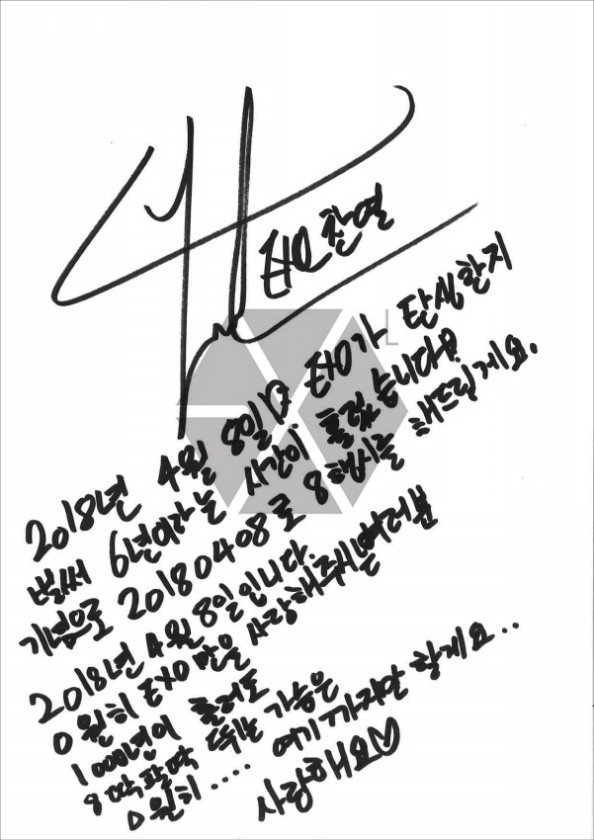 EXO 찬열
2018년 4월 8일!? EXO가 탄생한지
벌써 6년이라는 시간이 흘렀습니다!?
기념으로 20180408로 8행시를 해드릴게요.
2018년 4월 8일입니다.
0원히 EXO만을 사랑해주시는 여러분
1000년이 흘러도
8딱팔딱 뛰는 가슴은
0원히.... 여기까지만 할게요..
사랑해요♡
L